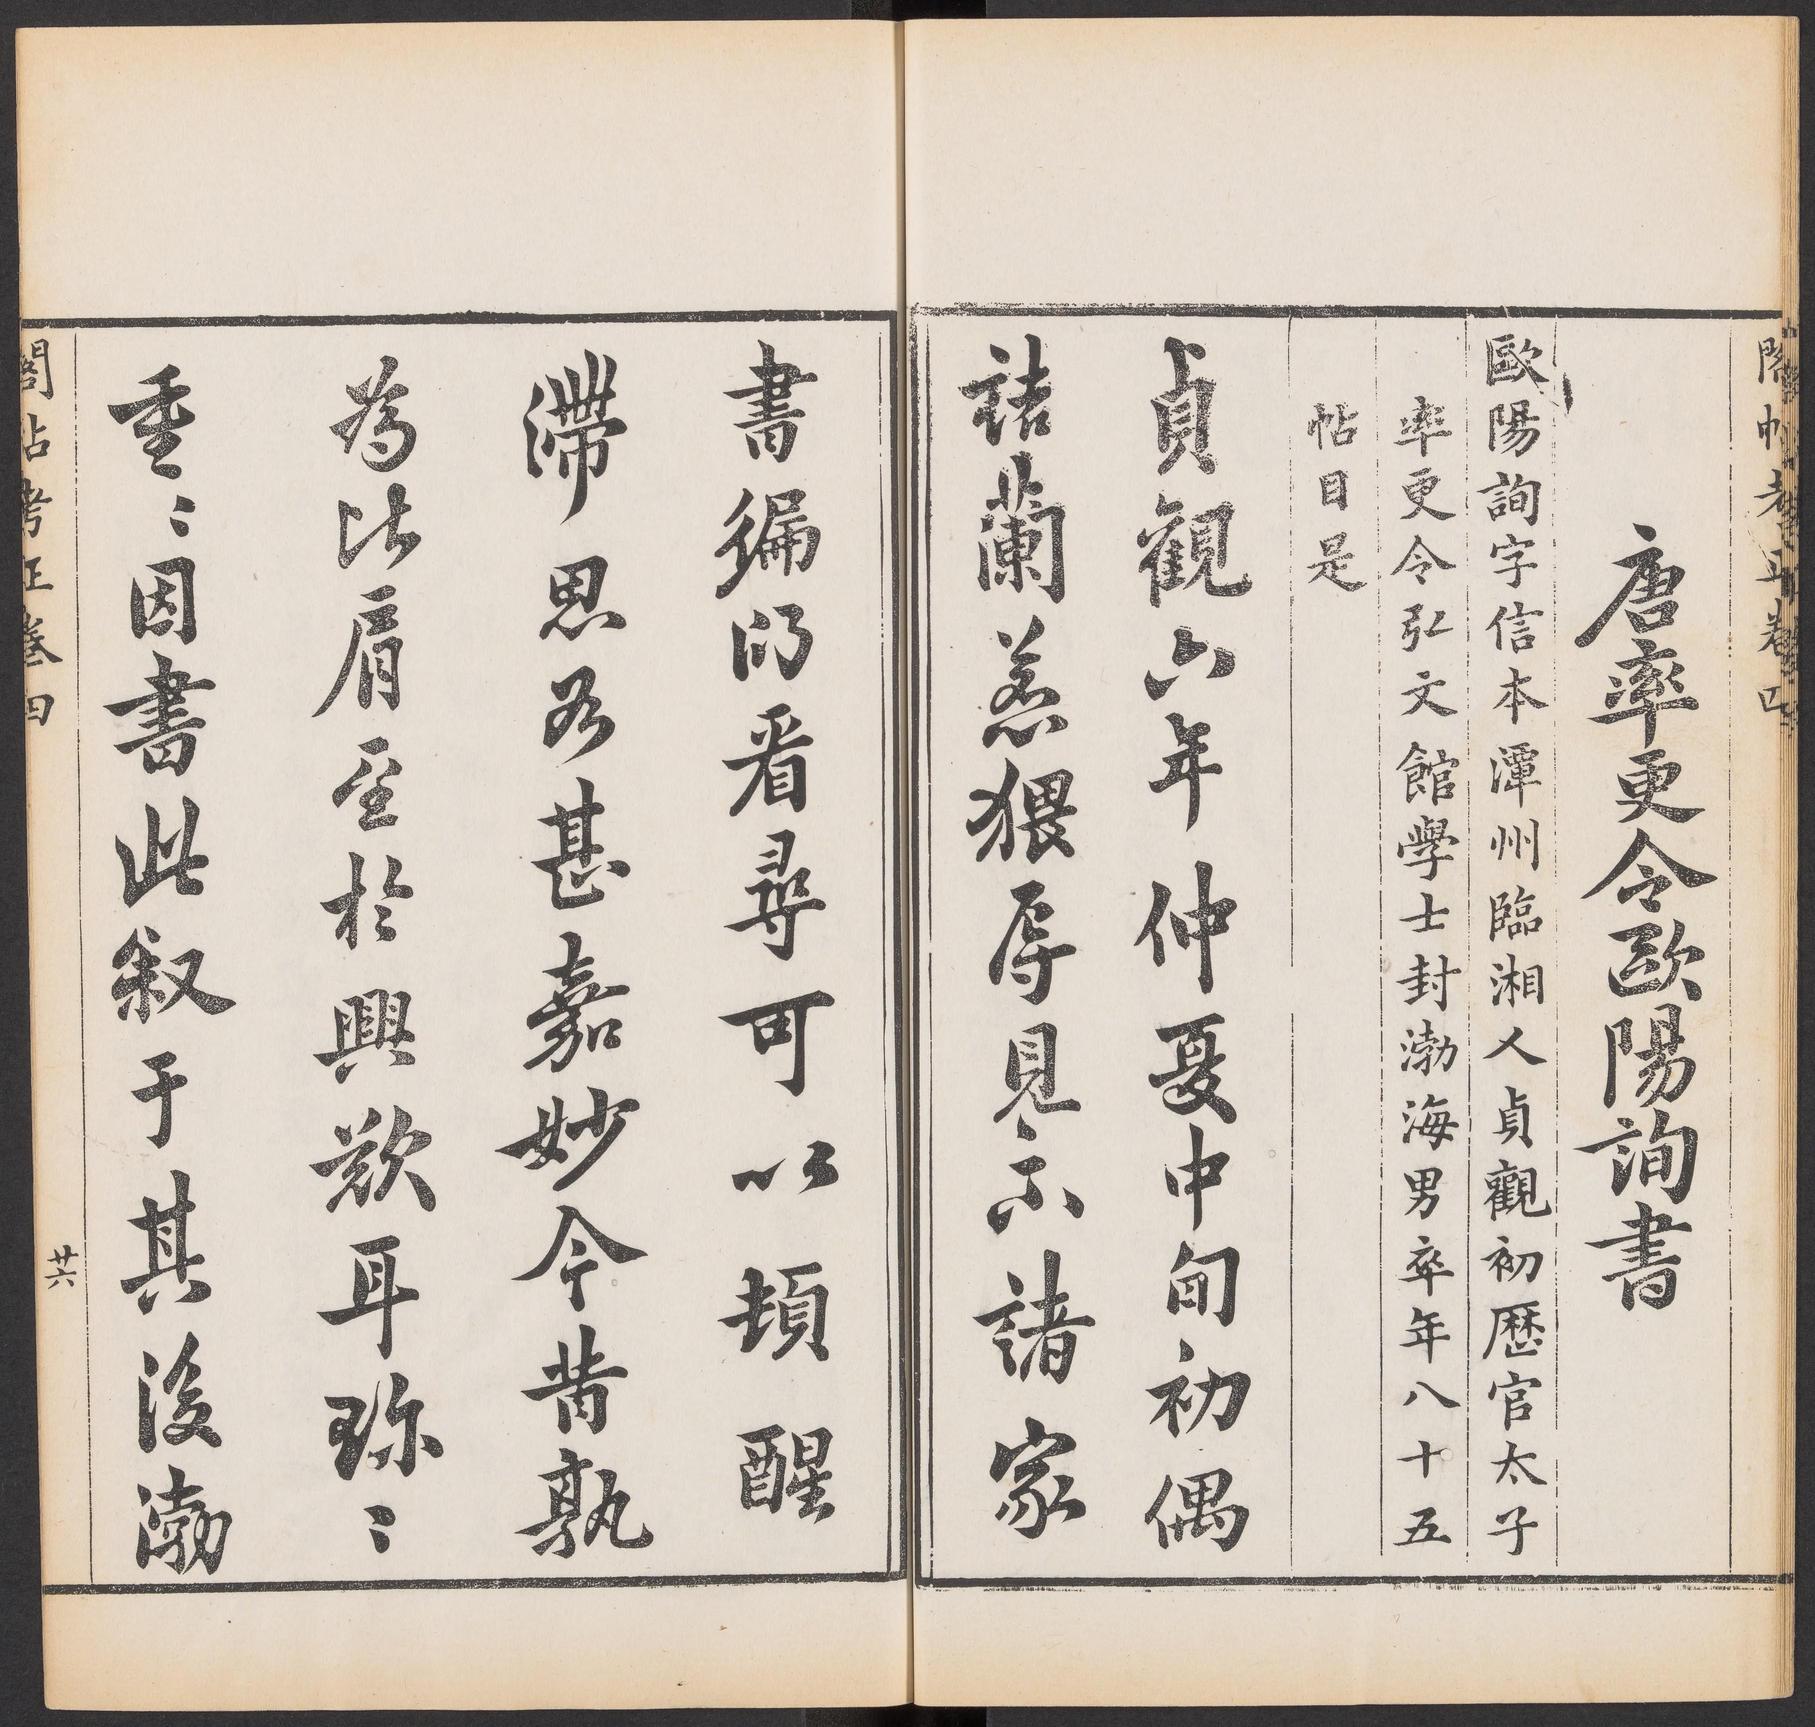 唐率更令歐陽詢書
歐陽詢字信本潭州臨湘人貞觀初歷官太子
率更令弘文館學士封渤海男卒年八十五
帖目是
貞觀六年仲夏中旬初偶
詣蘭若猥辱見示諸家
書徧仍看尋可以頓醒
滯思為甚嘉妙今昔孰
為比肩至於興歎耳珎〻
重〻因書此叙于其後渤
閣帖考正卷四
廿六